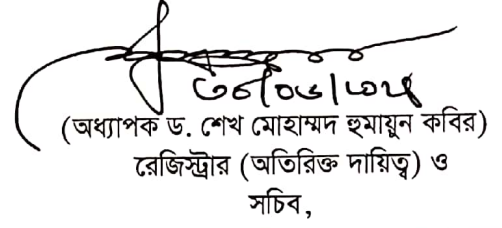 (অধ্যাপক ড. শেখ মোহাম্মদ হুমায়ুন কবির)
রেজিস্ট্রার (অতিরিক্ত দায়িত্ব) ও
সচিব,